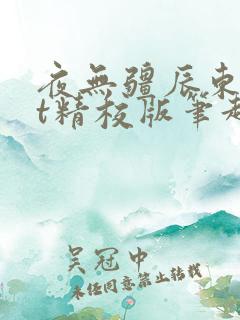 夜無疆辰東
t精校版筆趣
吴冠中
未经同意禁止转载